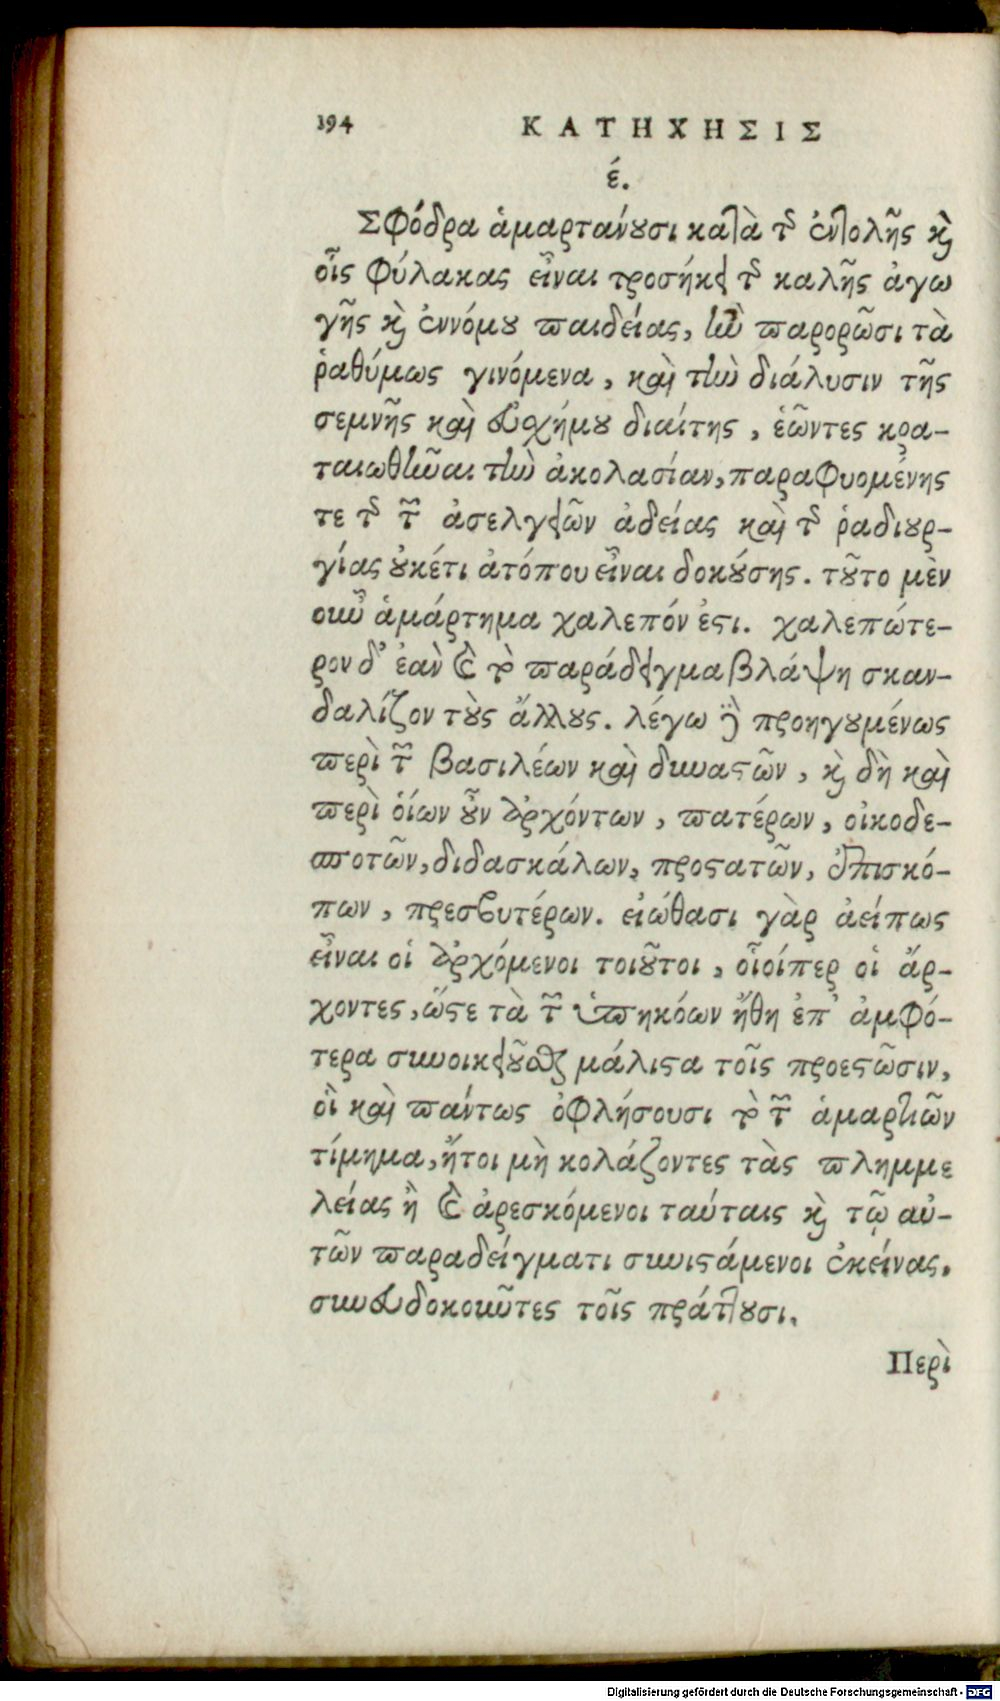 194 ΚΑΤΗΧΗΣΙΣ
έ.
Σφόδρα ἁμαρτάνουσι κατὰ τῆς ἐντολῆς καὶ
οἷς φύλακας εἶναι προσήκει τῆς καλῆς ἀγω
γῆς καὶ ἐννόμου παιδείας, ἢν παρορῶσι τὰ
ῥαθύμως γινόμενα, καὶ τὴν διάλυσιν τῆς
σεμνῆς καὶ εὐσχήμου διαίτης, ἐῶντες κρα-
ταιωθῆναι τὴν ἀκολασίαν, παραφυομένης
τε τῆς τῶν ἀσελγειῶν ἀδείας καὶ τῆς ῥαδιουρ-
γίας οὐκέτι ἀτόπου εἶναι δοκούσης. τοῦτο μὲν
οὖν ἁμάρτημα χαλεπόν ἐστι. χαλεπώτε-
ρον δ' ἐὰν καὶ τὸ παράδειγμα βλάψῃ σκαν-
δαλίζον τοὺς ἄλλους. λέγω δὲ προηγουμένως
περὶ τῶν βασιλέων καὶ δυναστῶν, καὶ δὴ καὶ
περὶ οἵων οὖν ἀρχόντων, πατέρων, οἰκοδε-
σποτῶν, διδασκάλων, προστατῶν, ἐπισκό-
πων, πρεσβυτέρων. εἰώθασι γὰρ ἀείπως
εἶναι οἱ ἀρχόμενοι τοιοῦτοι, οἷοίπερ οἱ ἄρ-
χοντες, ὥστε τὰ τῶν ὑπηκόων ἤθη ἐπ' ἀμφό-
τερα συνοικειοῦσθαι μάλιστα τοῖς προεστῶσιν,
οἳ καὶ πάντως ὀφλήσουσι τὸ τῶν ἁμαρτιῶν
τίμημα, ἤτοι μὴ κολάζοντες τὰς πλημμε
λείας ἢ καὶ ἀρεσκόμενοι ταύταις καὶ τῷ αὑ-
τῶν παραδείγματι συνιστάμενοι ἐκείνας,
συνευδοκοῦντες τοῖς πράττουσι.
Περὶ
Digitalisierung gefördert durch die Deutsche Forschungsgemeinschaft - DFG